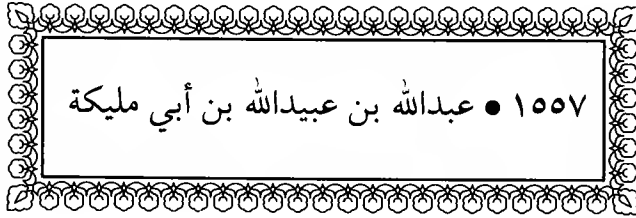 ١٥٥٧ • عبدالله بن عبيدالله بن أبي مليكة